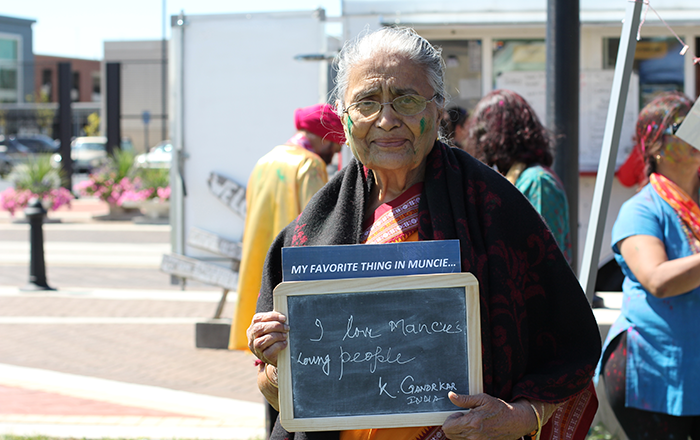 MY FAVORITE THING IN MUNCIE...
I love Muncie's
loving people
K. Gandrkar
INDIA